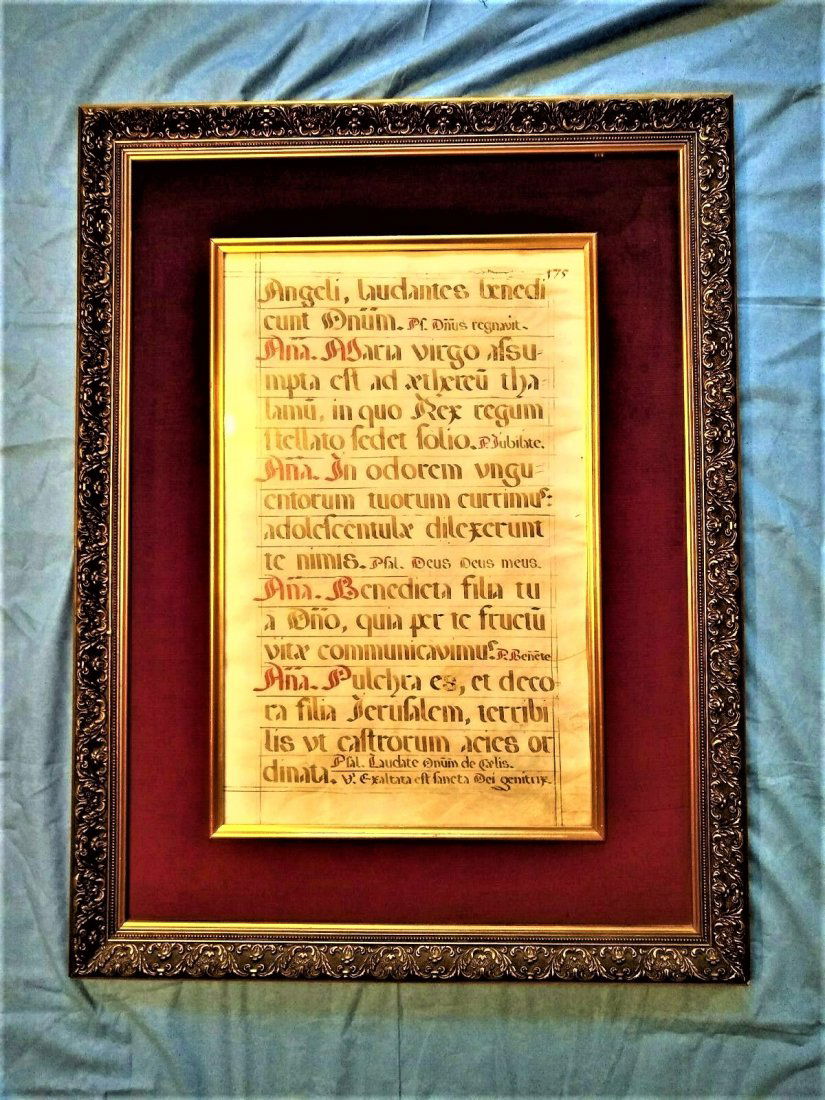 175
Angeli, laudantes benedi
cunt Dn̄um̄. Ps. Dn̄us regnavit.
An̄a. Maria virgo aſsu-
mpta eſt ad æthereū tha-
lamū, in quo Rex regum
ſtellato ſedet ſolio. P. Jubilate.
An̄a. In odorem vngu-
entorum tuorum currimus:
adoleſcentulæ dilexerunt
te nimis. Pſal. Deus Deus meus.
An̄a. Benedicta filia tu
a Dn̄o, quia per te fructū
vitæ communicavimus. P. Ben̄cte
An̄a. Pulchra es, et deco
ra filia Jeruſalem, terribi
lis vt caſtrorum acies or
dinata. Pſal. Laudate Dn̄um de Cœlis.
V. Exaltata eſt ſancta Dei genitrix.